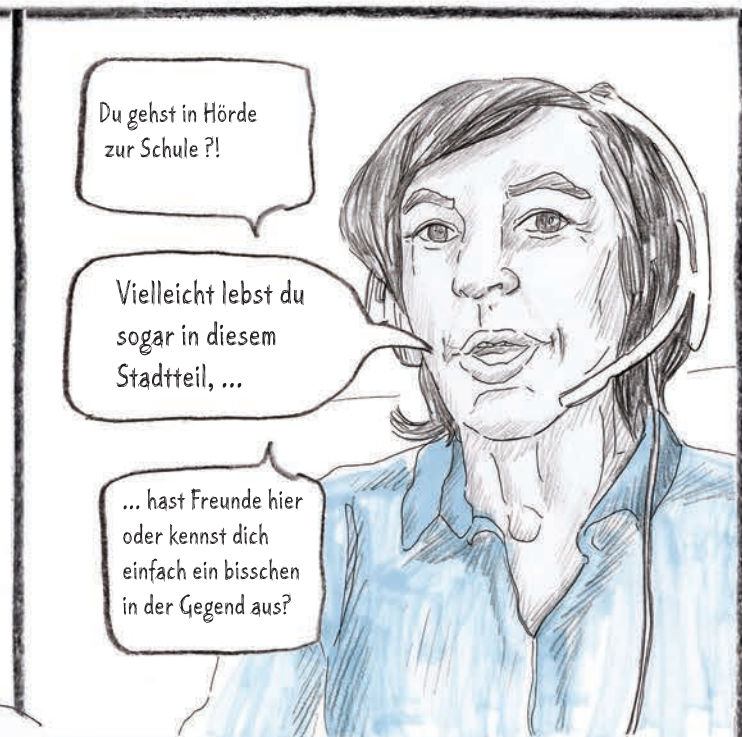 Du gehst in Hörde
zur Schule ?!
Vielleicht lebst du
sogar in diesem
Stadtteil, ...
... hast Freunde hier
oder kennst dich
einfach ein bisschen
in der Gegend aus?